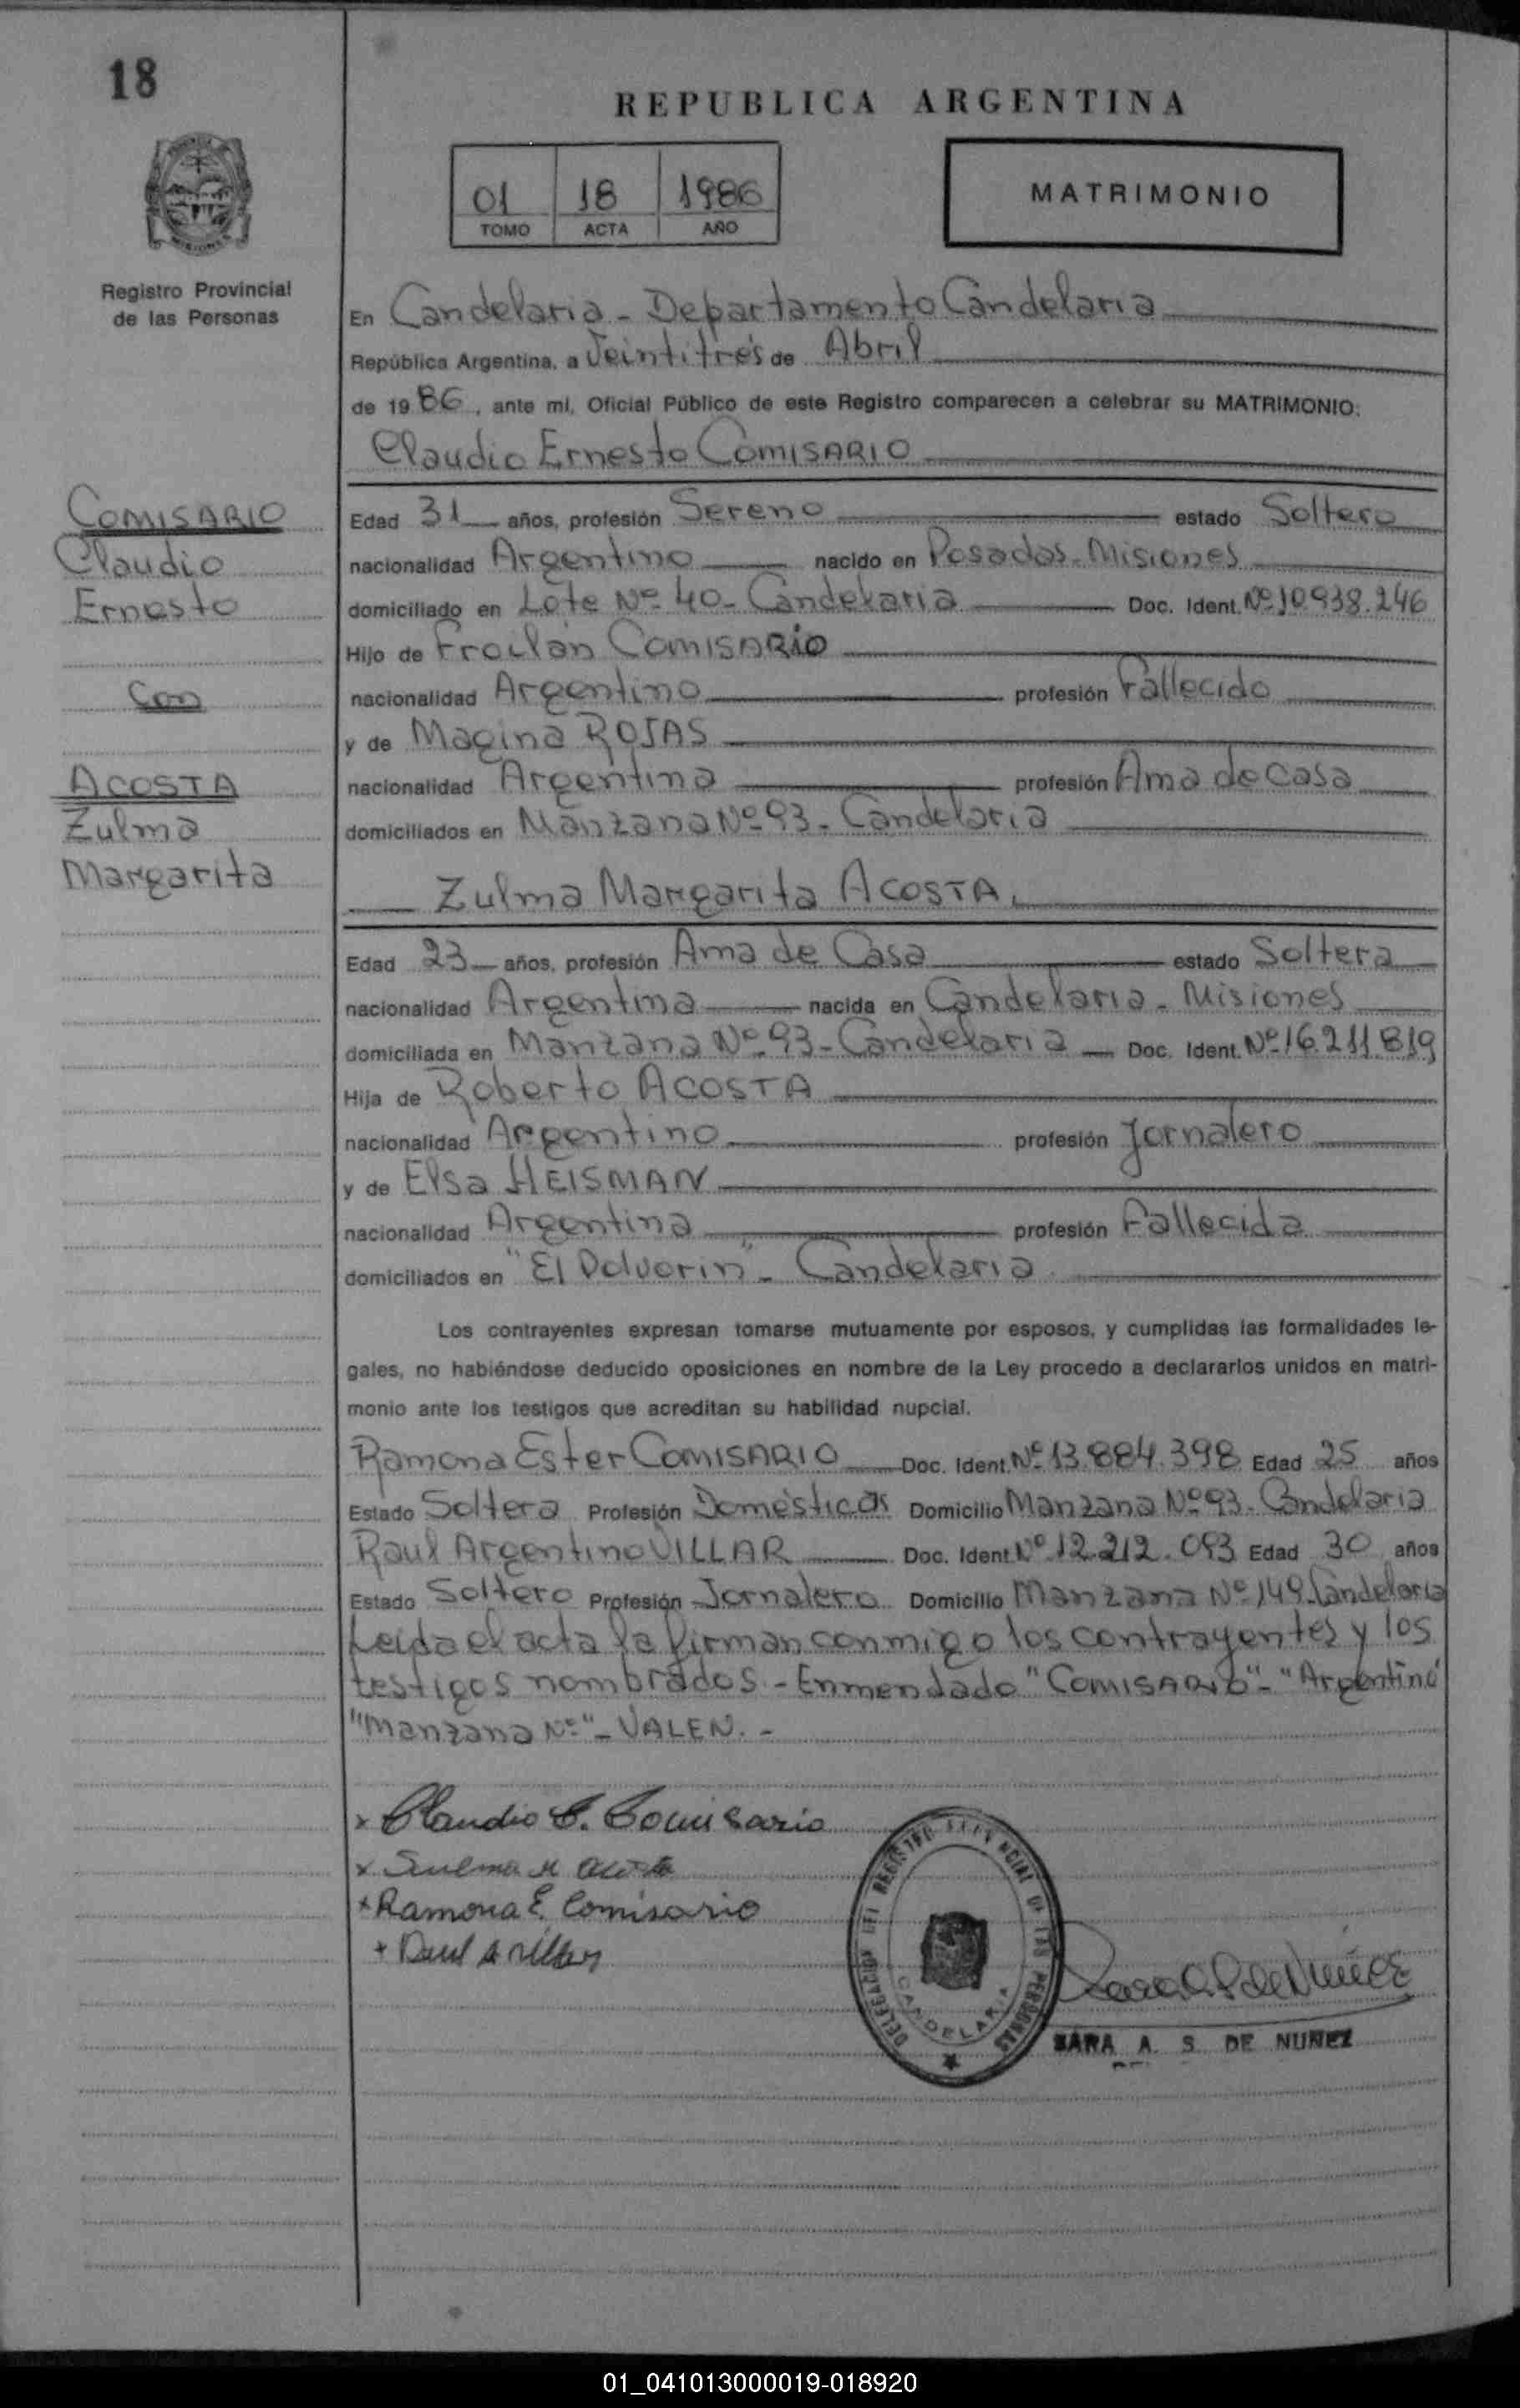 18
REPUBLICA ARGENTINA
01 18 1986
TOMO ACTA AÑO
MATRIMONIO
MISIONES
Registro Provincial
de las Personas
En Candelaria - Departamento Candelaria
República Argentina, a Veintitrés de Abril
de 1986, ante mi, Oficial Público de este Registro comparecen a celebrar su MATRIMONIO:
Claudio Ernesto COMISARIO
COMISARIO
Claudio
Ernesto
Con
ACOSTA
Zulma
Margarita
Edad 31 años, profesión Sereno estado Soltero
nacionalidad Argentino nacido en Posadas - Misiones
domiciliado en Lote Nº 40 - Candelaria Doc. Ident. Nº 10.938.246
Hijo de Froilán COMISARIO
nacionalidad Argentino profesión Fallecido
y de Magina ROJAS
nacionalidad Argentina profesión Ama de Casa
domiciliados en Manzana Nº 93 - Candelaria
Zulma Margarita ACOSTA.
Edad 23 años, profesión Ama de Casa estado Soltera
nacionalidad Argentina nacida en Candelaria - Misiones
domiciliada en Manzana Nº 93 - Candelaria Doc. Ident. Nº 16.211.819
Hija de Roberto ACOSTA
nacionalidad Argentino profesión Jornalero
y de Elsa HEISMAN
nacionalidad Argentina profesión Fallecida
domiciliados en "El Polvorin" - Candelaria
Los contrayentes expresan tomarse mutuamente por esposos, y cumplidas las formalidades le-
gales, no habiéndose deducido oposiciones en nombre de la Ley procedo a declararlos unidos en matri-
monio ante los testigos que acreditan su habilidad nupcial.
Ramona Ester COMISARIO Doc. Ident. Nº 13.884.398 Edad 25 años
Estado Soltera Profesión Domésticas Domicilio Manzana Nº 93 - Candelaria
Raul Argentino VILLAR Doc. Ident. Nº 12.212.093 Edad 30 años
Estado Soltero Profesión Jornalero Domicilio Manzana Nº 149 Candelaria
Leída el acta la firman conmigo los contrayentes y los
testigos nombrados - Enmendado "COMISARIO" - "Argentino"
"Manzana Nº" - VALEN. -
x Claudio E. Comisario
x Sulma M Acosta
+ Ramona E. Comisario
+ Raul A Villar
DELEGACION DEL REGISTRO PROVINCIAL DE LAS PERSONAS
CANDELARIA
Sara A. S. de Nuñez
SARA A. S. DE NUÑEZ
01_041013000019-018920